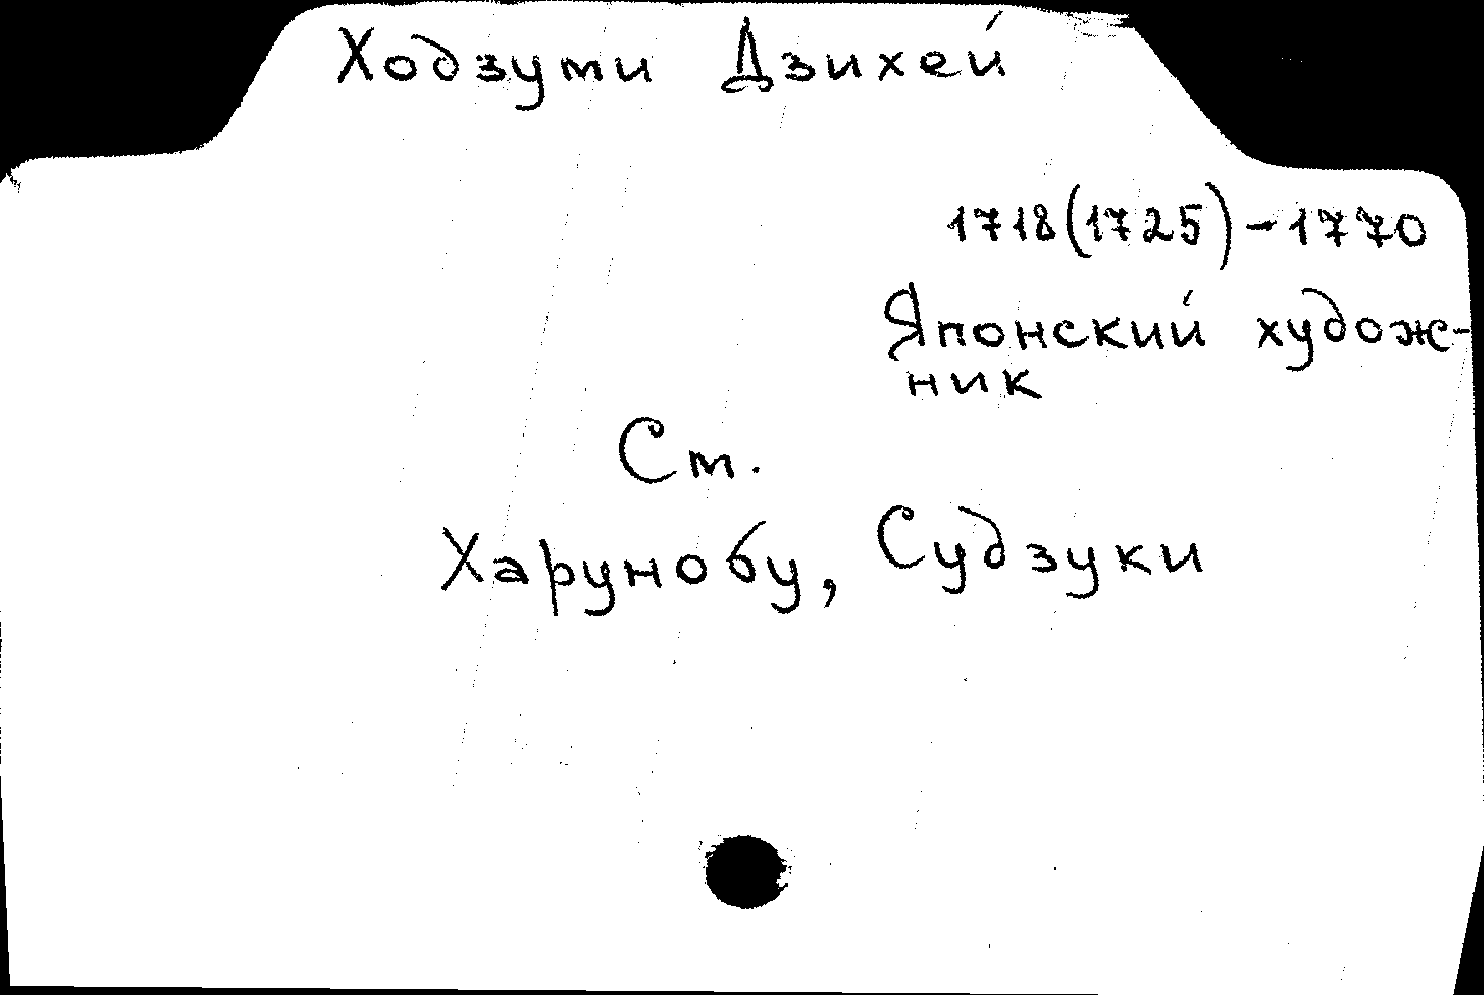 Ходзути Дзихей
1718(1725)-1770
Японский худож-
ник
Ст.
Харунобу, Судзуки